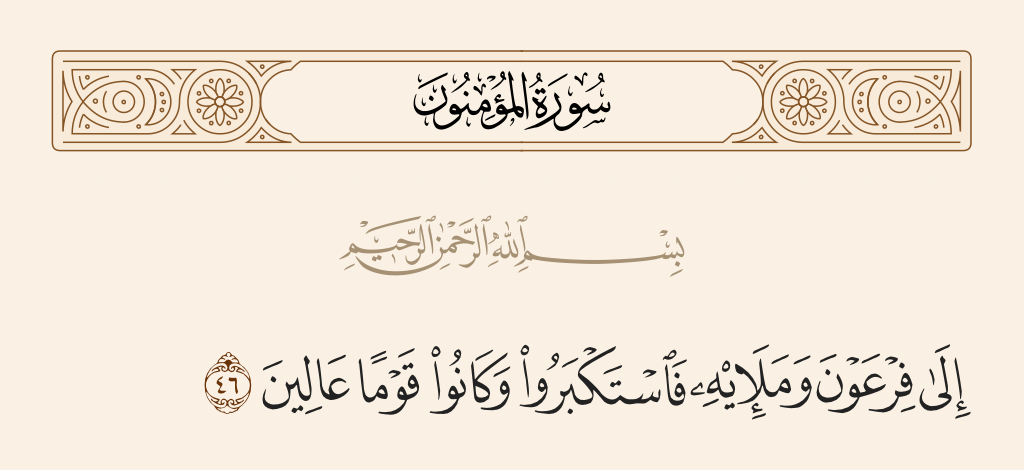 سُورَةُ الْمُؤْمِنُون
بِسْمِ ٱللَّهِ ٱلرَّحْمَٰنِ ٱلرَّحِيمِ
إِلَىٰ فِرْعَوْنَ وَمَلَإِي۟هِۦ فَٱسْتَكْبَرُوا۟ وَكَانُوا۟ قَوْمًا عَالِينَ ٤٦